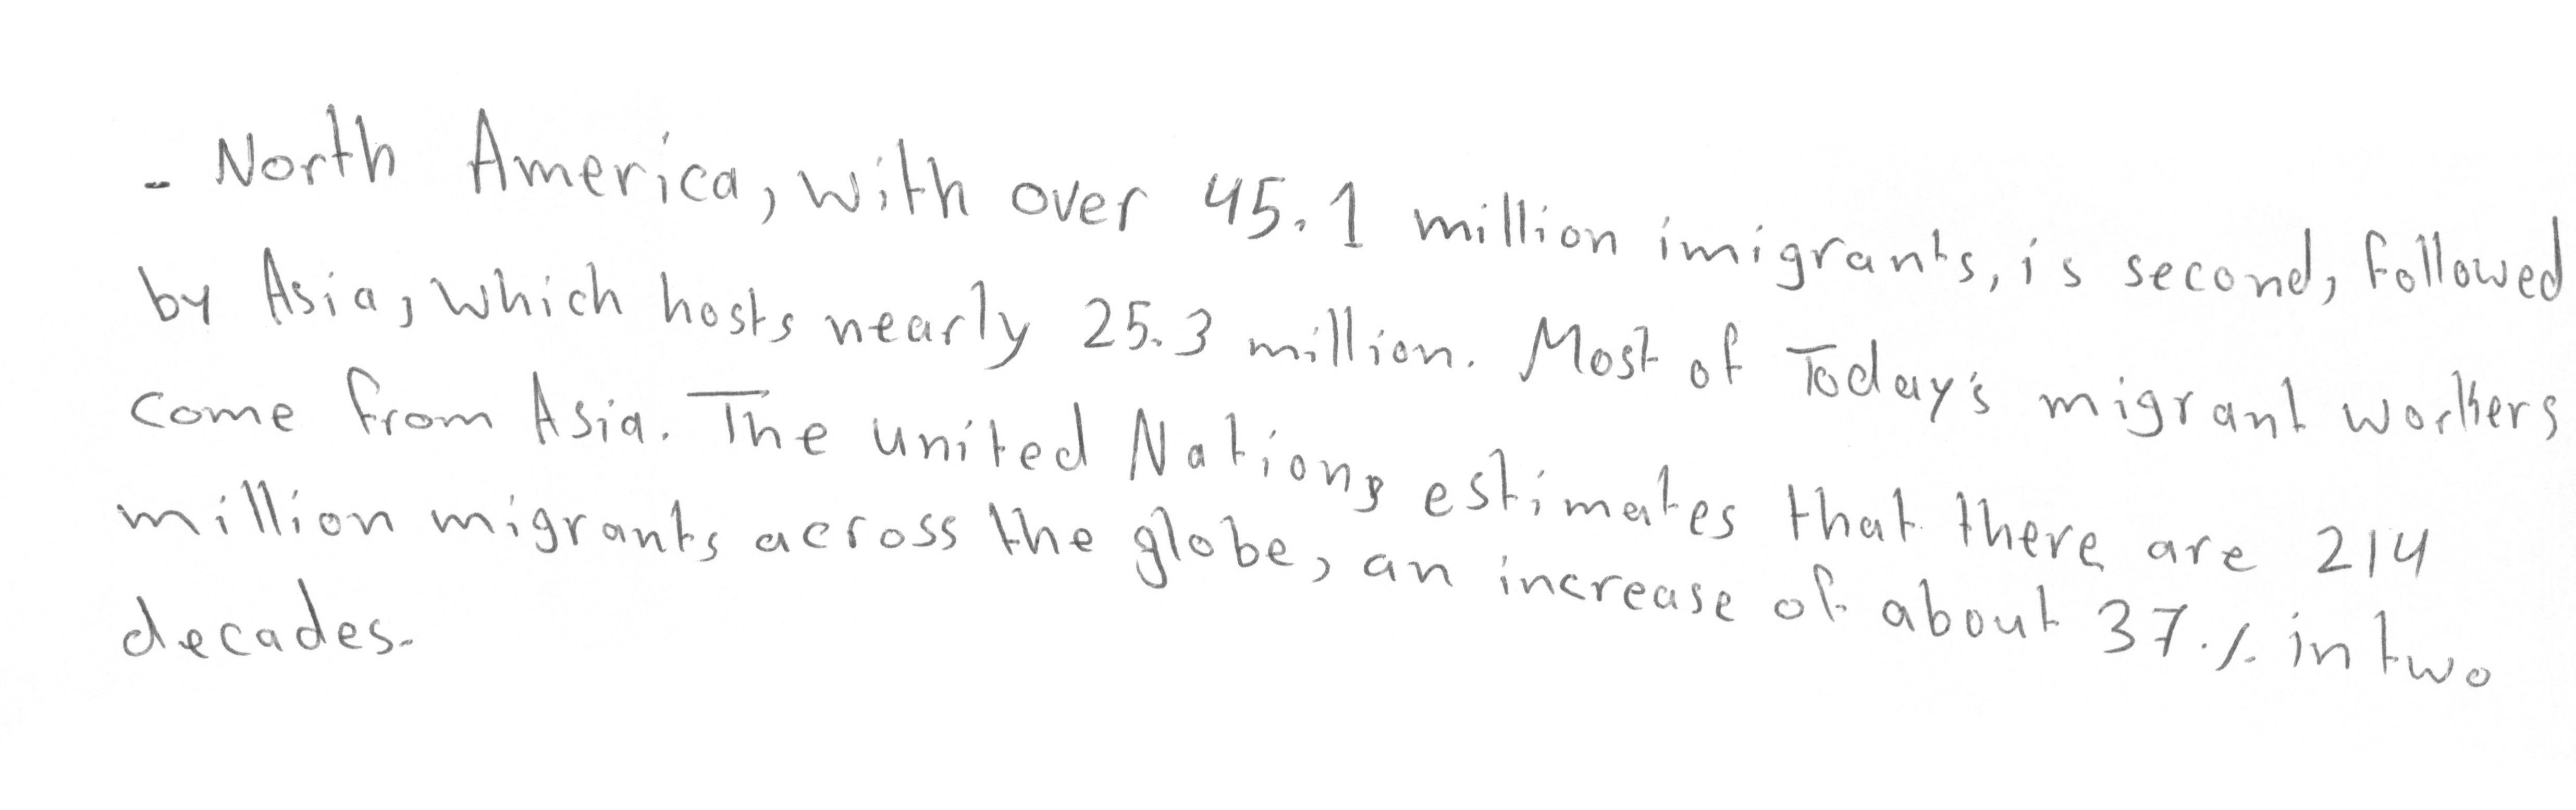 - North America, with over 45.1 million imigrants, is second, followed
by Asia, which hosts nearly 25.3 million. Most of Today's migrant workers
come from Asia. The united Nations estimates that there are 214
million migrants across the globe, an increase of about 37% in two
decades.